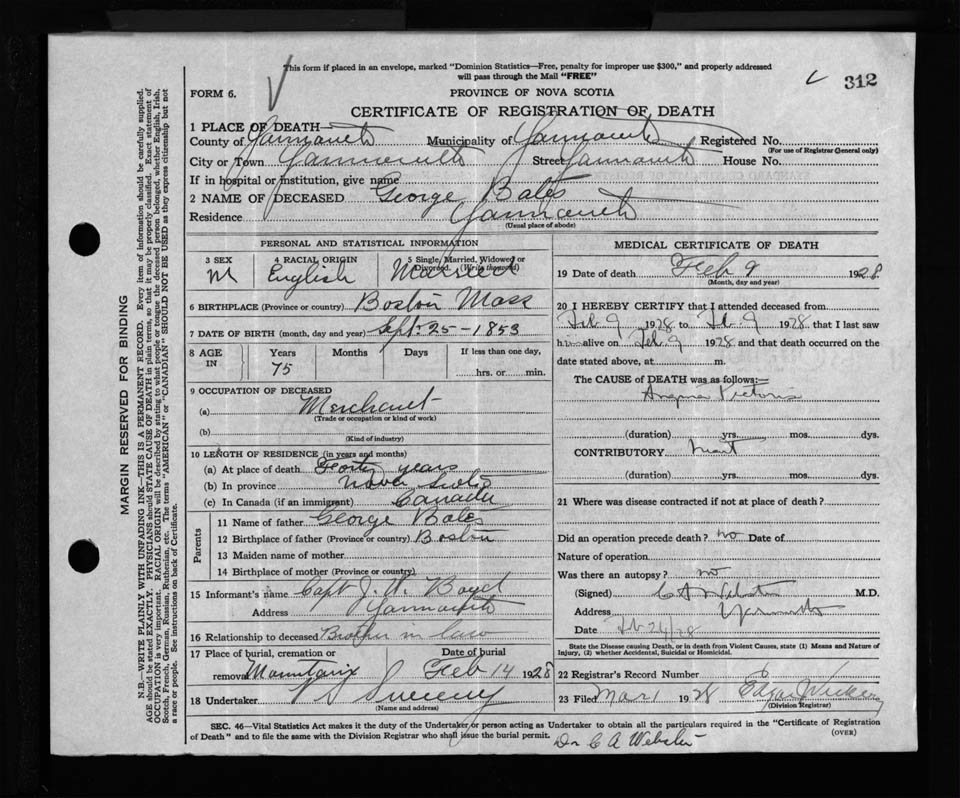 This form if placed in an envelope, marked "Dominion Statistics—Free, penalty for improper use $300," and properly addressed
will pass through the Mail "FREE"
312
FORM 6.
PROVINCE OF NOVA SCOTIA
CERTIFICATE OF REGISTRATION OF DEATH
1 PLACE OF DEATH—
County of Yarmouth Municipality of Yarmouth Registered No.
(For use of Registrar General only)
City or Town Yarmouth Street Yarmouth House No.
If in hospital or institution, give name
2 NAME OF DECEASED George Bales
Residence Yarmouth
(Usual place of abode)
PERSONAL AND STATISTICAL INFORMATION
3 SEX 4 RACIAL ORIGIN 5 Single, Married, Widowed or Divorced. (Write the word)
M English Married
6 BIRTHPLACE (Province or country) Boston Mass
7 DATE OF BIRTH (month, day and year) Sept-25-1853
8 AGE IN Years Months Days If less than one day,
75 hrs. or min.
9 OCCUPATION OF DECEASED
(a) Merchant
(Trade or occupation or kind of work)
(b)
(Kind of industry)
10 LENGTH OF RESIDENCE (in years and months)
(a) At place of death Forty years
(b) In province Nova Scotia
(c) In Canada (if an immigrant) Canada
Parents
11 Name of father George Bales
12 Birthplace of father (Province or country) Boston
13 Maiden name of mother
14 Birthplace of mother (Province or country)
15 Informant's name Capt J. W. Boyd
Address Yarmouth
16 Relationship to deceased Brother in law
17 Place of burial, cremation or Date of burial
removal Mountain Feb 14 1928
18 Undertaker V S Sweeny
(Name and address)
MEDICAL CERTIFICATE OF DEATH
19 Date of death Feb 9 1928
(Month, day and year)
20 I HEREBY CERTIFY that I attended deceased from
Feb 9 1928 to Feb 9 1928, that I last saw
him alive on Feb 9 1928 and that death occurred on the
date stated above, at m.
The CAUSE OF DEATH was as follows:—
Angina Pectoris
(duration) yrs. mos. dys.
CONTRIBUTORY
(duration) yrs. mos. dys.
21 Where was disease contracted if not at place of death?
Did an operation precede death? no Date of
Nature of operation
Was there an autopsy? no
(Signed) C A Webster M.D.
Address Yarmouth
Date Feb 24/28
State the Disease causing Death, or in death from Violent Causes, state (1) Means and Nature of
Injury, (2) whether Accidental, Suicidal or Homicidal.
22 Registrar's Record Number
23 Filed Mar 1 1928 Edgar
(Division Registrar)
SEC. 46—Vital Statistics Act makes it the duty of the Undertaker or person acting as Undertaker to obtain all the particulars required in the "Certificate of Registration
of Death" and to file the same with the Division Registrar who shall issue the burial permit.
(OVER)
Dr C A Webster
MARGIN RESERVED FOR BINDING
N.B.—WRITE PLAINLY WITH UNFADING INK—THIS IS A PERMANENT RECORD. Every item of information should be carefully supplied.
AGE should be stated EXACTLY. PHYSICIANS should STATE CAUSE OF DEATH in plain terms, so that it may be properly classified. Exact statement of
OCCUPATION is very important. RACIAL ORIGIN will be described by stating to what people or tongue the deceased person belonged, whether English, Irish,
Scotch, French, German, Russian, Ruthenian, etc. The terms "AMERICAN" or "CANADIAN" SHOULD NOT BE USED as they express citizenship but not
a race or people. See instructions on back of Certificate.